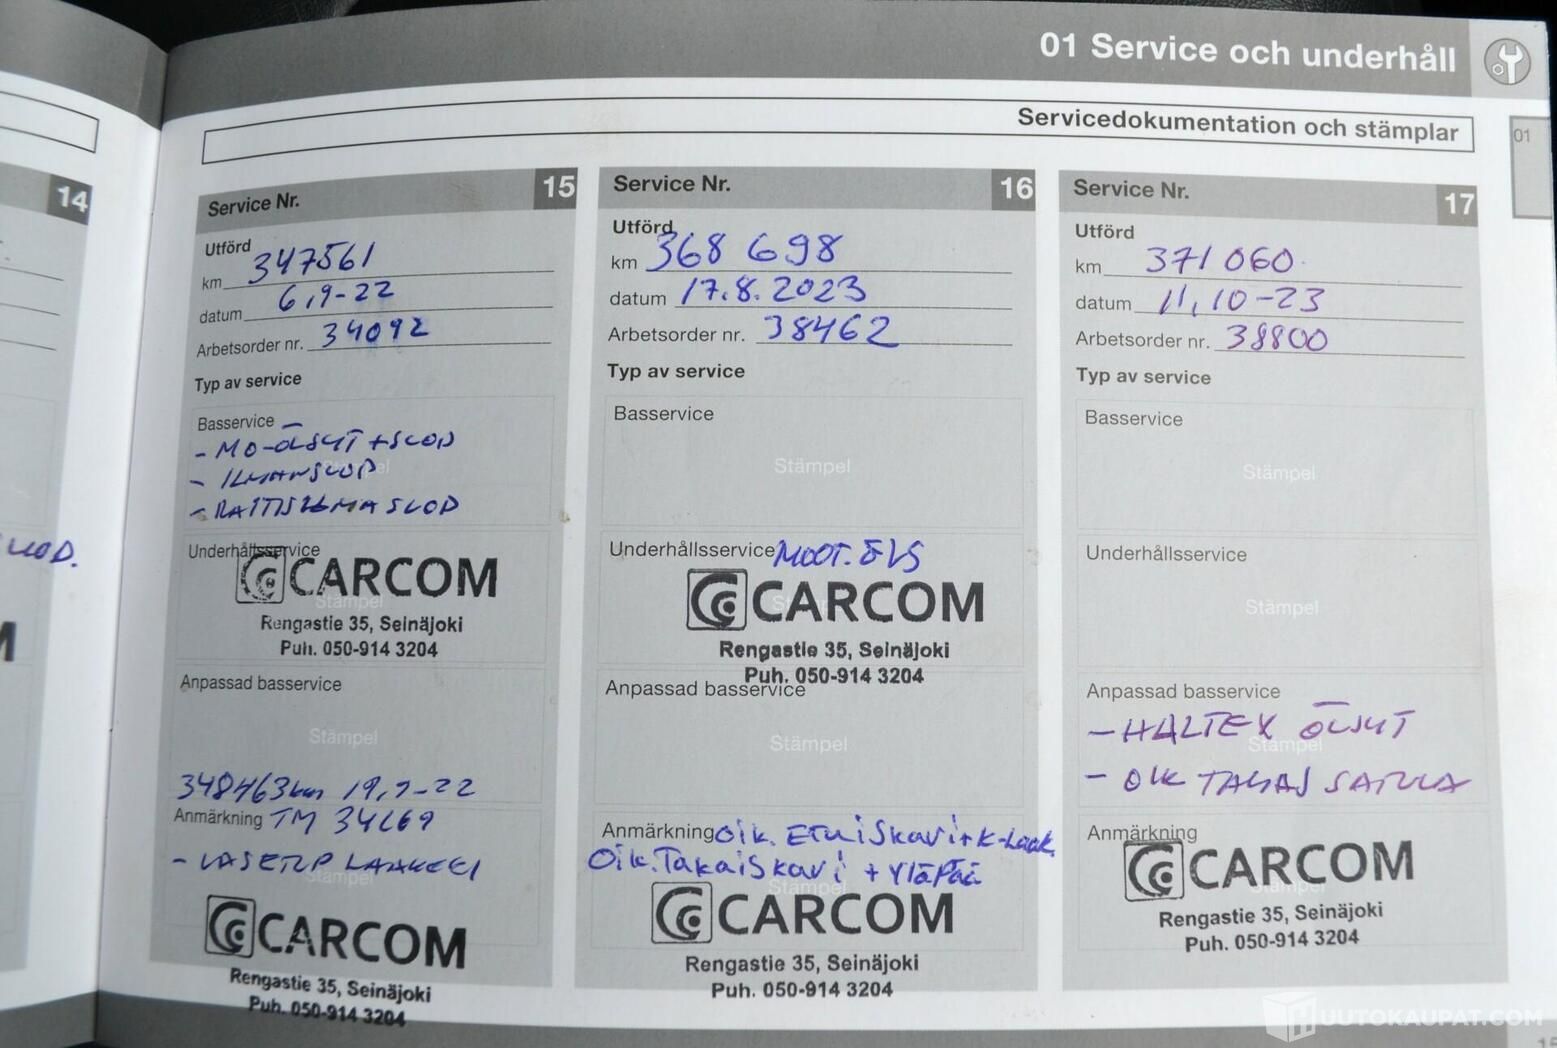 01 Service och underhåll
Servicedokumentation och stämplar
01
14
KOD.
Service Nr. 15
Utförd
km 347561
datum 6,9-22
Arbetsorder nr. 34092
Typ av service
Basservice
- MO-ÖLJYT + SUOD
- ILMANSUOD
- RAITISILMASUOD
Stämpel
Underhållsservice
CARCOM
Stämpel
Rengastie 35, Seinäjoki
Puh. 050-914 3204
Anpassad basservice
Stämpel
348463km 19,9-22
Anmärkning TM 34269
- VASETUP LAAKERI
Stämpel
CARCOM
Rengastie 35, Seinäjoki
Puh. 050-914 3204
Service Nr. 16
Utförd
km 368 698
datum 17.8.2023
Arbetsorder nr. 38462
Typ av service
Basservice
Stämpel
Underhållsservice MOOT. ÖLJ
CARCOM
Rengastie 35, Seinäjoki
Puh. 050-914 3204
Anpassad basservice
Stämpel
Anmärkning Oik. ETuiskari+K-Laak.
Oik. Takaiskari + YläPää
Stämpel
CARCOM
Rengastie 35, Seinäjoki
Puh. 050-914 3204
Service Nr. 17
Utförd
km 371 060
datum 11,10-23
Arbetsorder nr. 38800
Typ av service
Basservice
Stämpel
Underhållsservice
Stämpel
Anpassad basservice
- HALTEX ÖLJYT
Stämpel
- OIK TAKAS SATULA
Anmärkning
CARCOM
Stämpel
Rengastie 35, Seinäjoki
Puh. 050-914 3204
HUUTOKAUPAT.COM